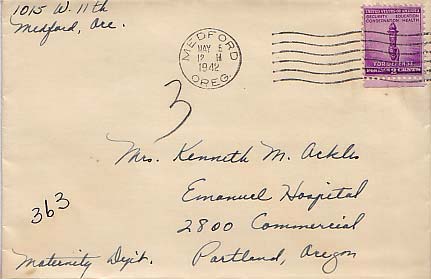 1015 W. 11th
Medford, Ore.
MEDFORD
MAY 5
12 M
1942
OREG.
UNITED STATES OF AMERICA
SECURITY EDUCATION
CONSERVATION HEALTH
FOR DEFENSE
3
Mrs. Kenneth M. Ackles
Emanuel Hospital
2800 Commercial
Portland, Oregon
363
Maternity Dept.